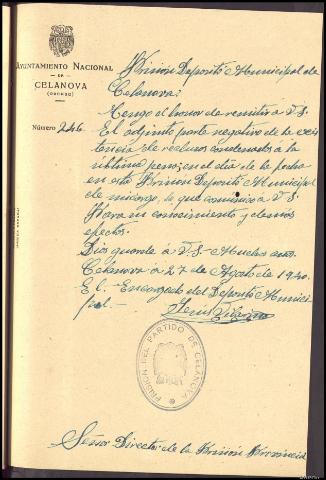 AYUNTAMIENTO NACIONAL
DE
CELANOVA
(ORENSE)
Número 246
Prision Deposito Municipal de
Celanova:
Tengo el honor de remitir á V.S.
El adjinto parte negativo de la exis
tencia de reclusos condenados á la
ultima pena, en el dia de la fecha
en esta Prision Deposito Municipal
de mi cargo, lo que comunico á V.S.
Para su conocimiento y demas
efectos.
Dios guarde á V.S. Muchos anos.
Celanova á 27 de Agosto de 1940.
El Encargado del Deposito Munici
pal.-
PRISION DEL PARTIDO DE CELANOVA
Señor Director de la Prision Provincial